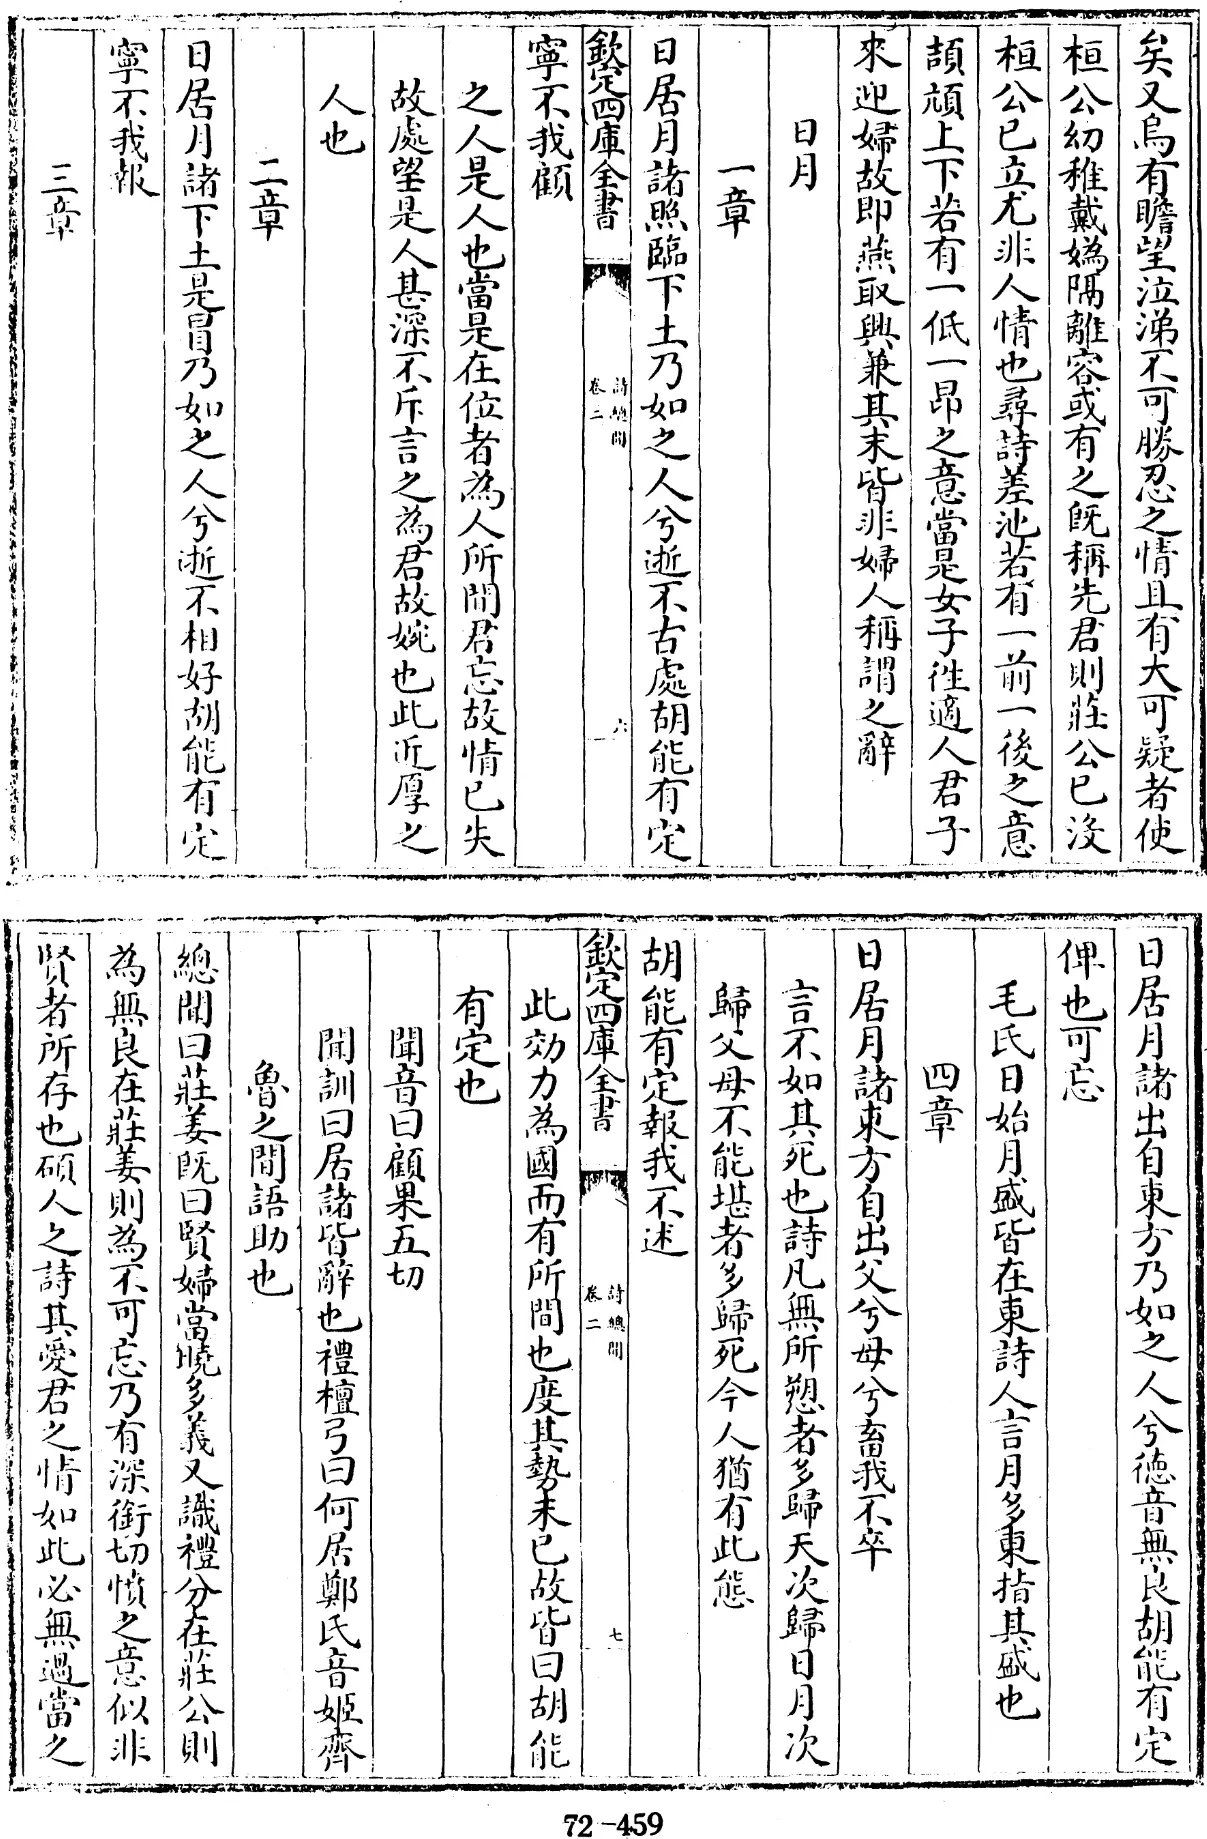 矣又烏有瞻望泣涕不可勝忍之情且有大可疑者使
桓公幼稚戴媯隔離容或有之既稱先君則莊公已沒
桓公已立尤非人情也尋詩差池若有一前一後之意
頡頏上下若有一低一昻之意當是女子徃適人君子
來迎婦故即燕取興兼其末皆非婦人稱謂之辭
日月
一章
日居月諸照臨下土乃如之人兮逝不古處胡能有定
欽定四庫全書
詩總聞
卷二
六
寧不我顧
之人是人也當是在位者為人所間君忘故情已失
故處望是人甚深不斥言之為君故婉也此近厚之
人也
二章
日居月諸下土是冒乃如之人兮逝不相好胡能有定
寧不我報
三章
日居月諸出自東方乃如之人兮德音無良胡能有定
俾也可忘
毛氏日始月盛皆在東詩人言月多東指其盛也
四章
日居月諸東方自出父兮母兮畜我不卒
言不如其死也詩凡無所愬者多歸天次歸日月次
歸父母不能堪者多歸死今人猶有此態
胡能有定報我不述
欽定四庫全書
詩總聞
卷二
七
此効力為國而有所間也度其勢未已故皆曰胡能
有定也
聞音曰顧果五切
聞訓曰居諸皆辭也禮檀弓曰何居鄭氏音姬齊
魯之間語助也
總聞曰莊姜既曰賢婦當曉多義又識禮分在莊公則
為無良在莊姜則為不可忘乃有深銜切憤之意似非
賢者所存也碩人之詩其愛君之情如此必無過當之
72-459